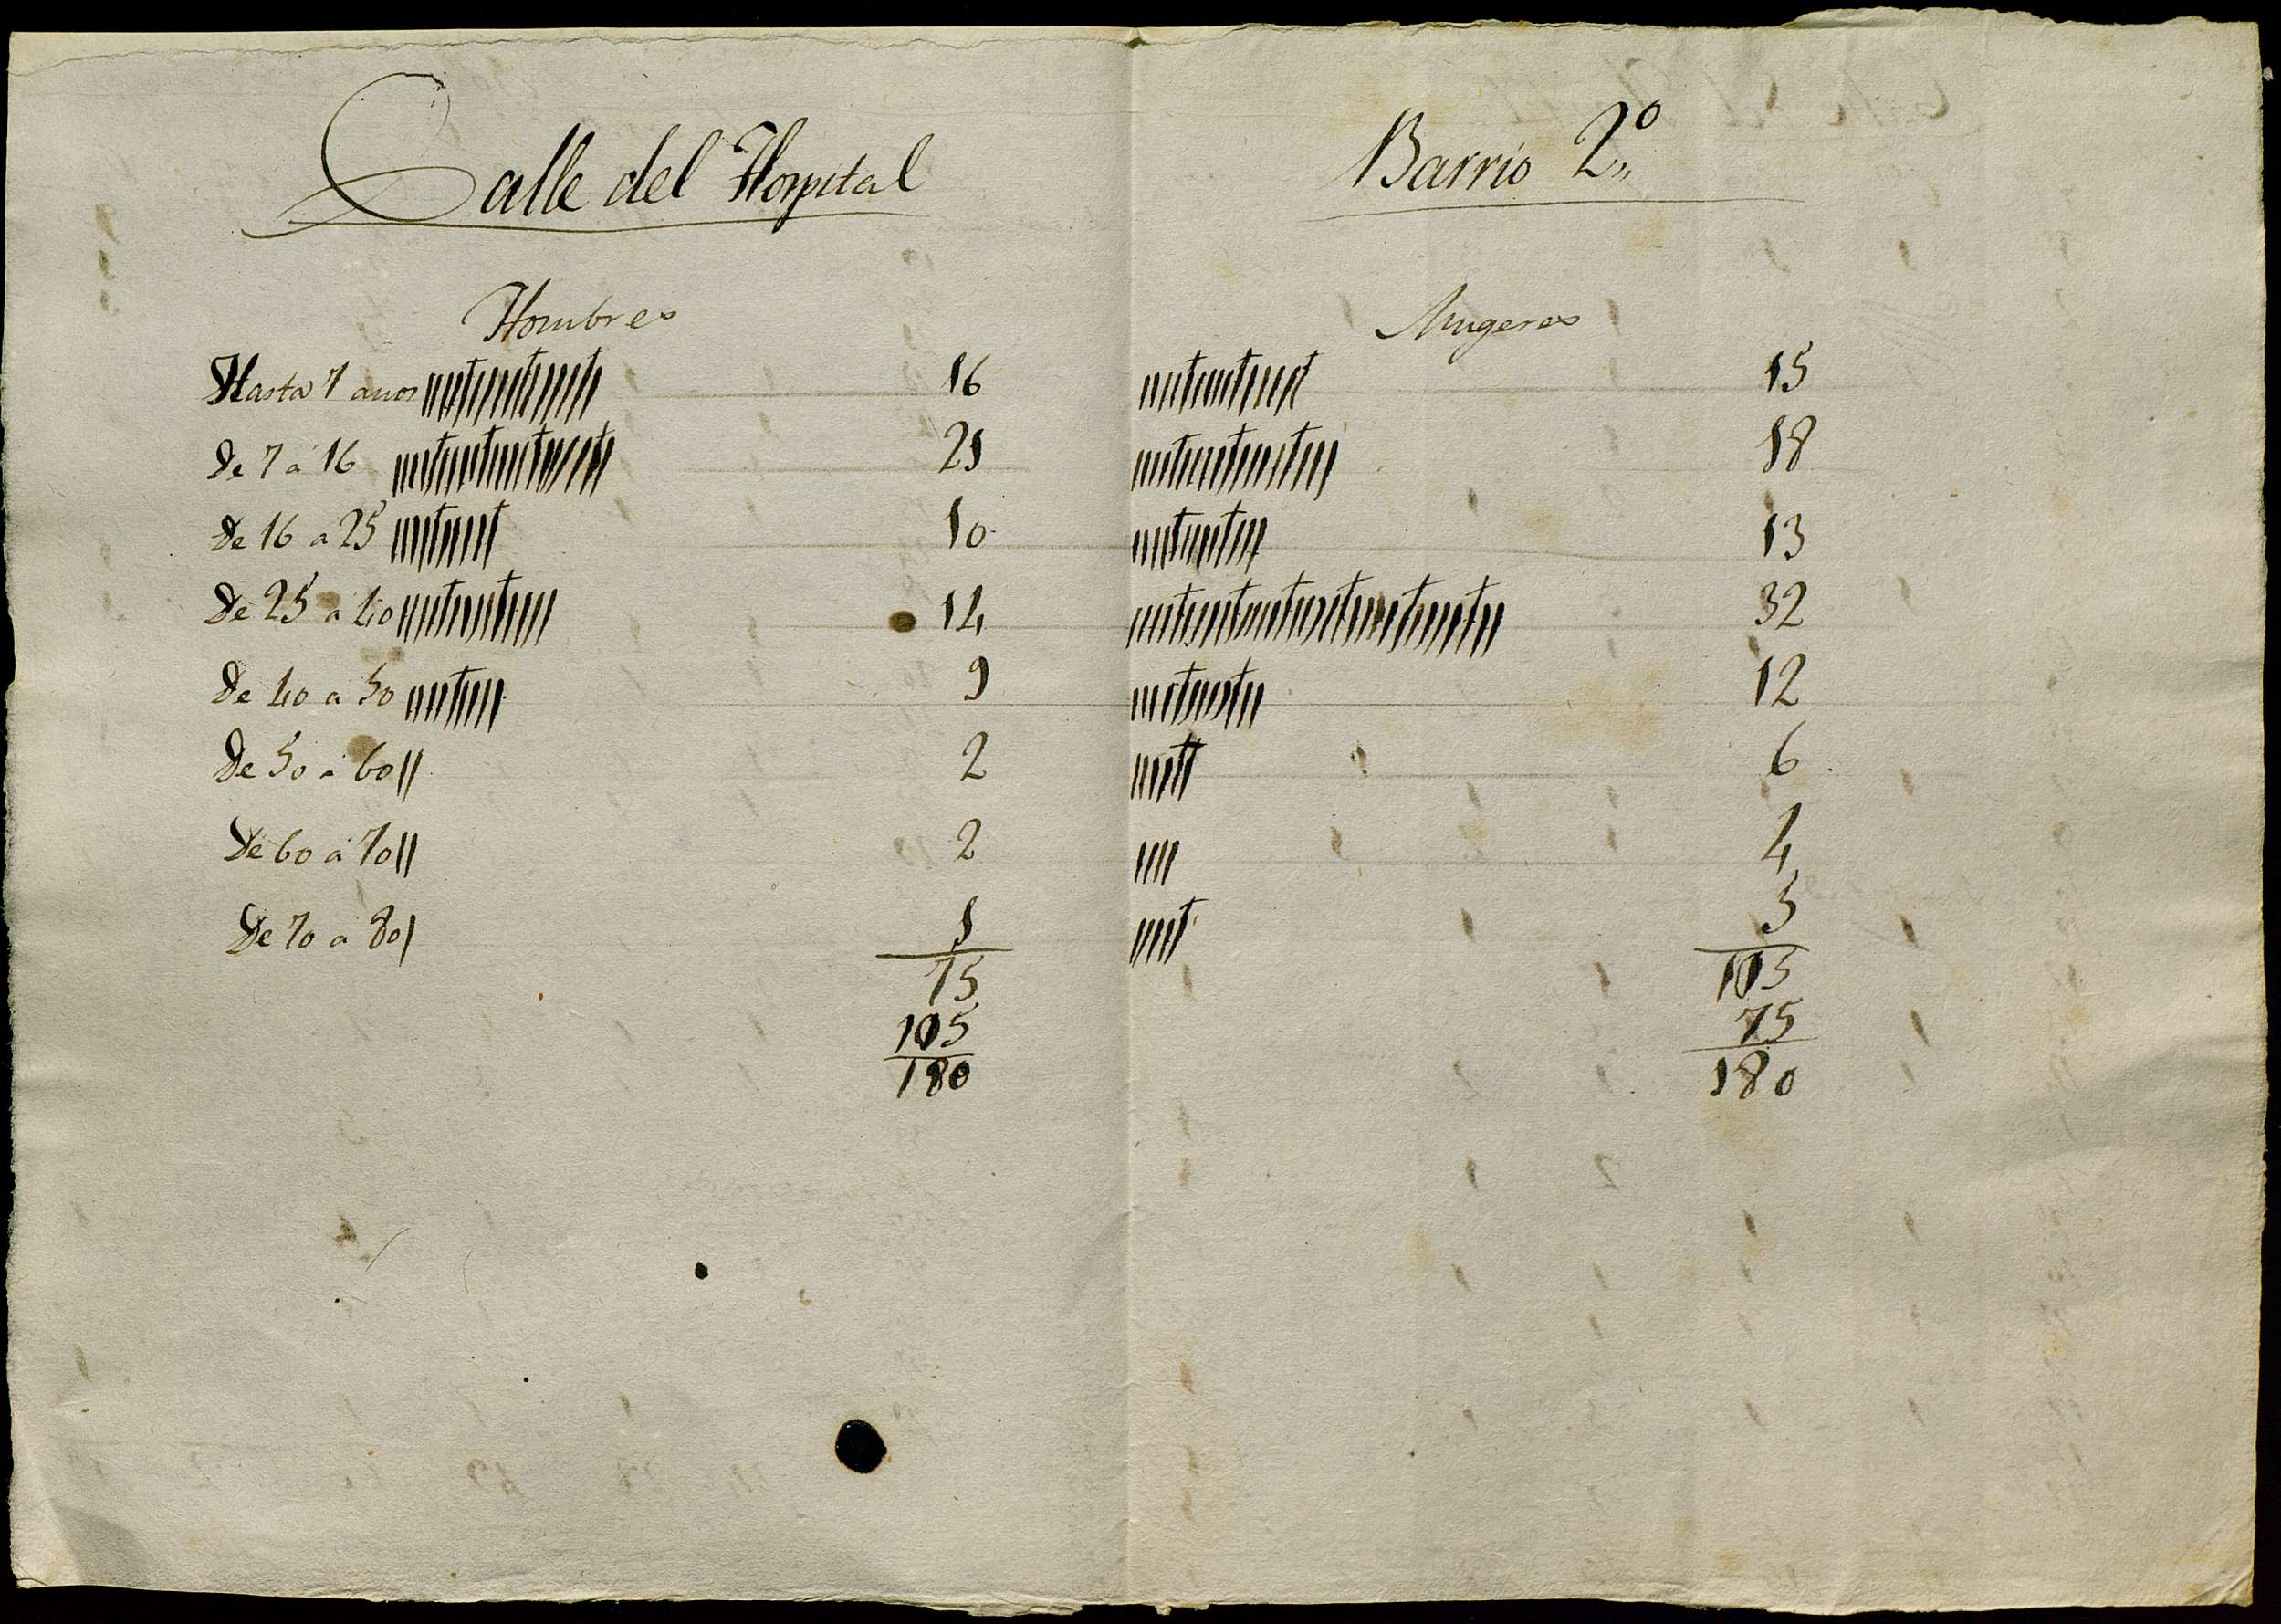 Calle del Hospital
Barrio 2º
Hombres
Mugeres
Hasta 7 años 16 15
De 7 a 16 21 18
De 16 a 25 10 13
De 25 a 40 14 32
De 40 a 50 9 12
De 50 a 60 2 6
De 60 a 70 2 4
De 70 a 80 1 5
75 105
105 75
180 180